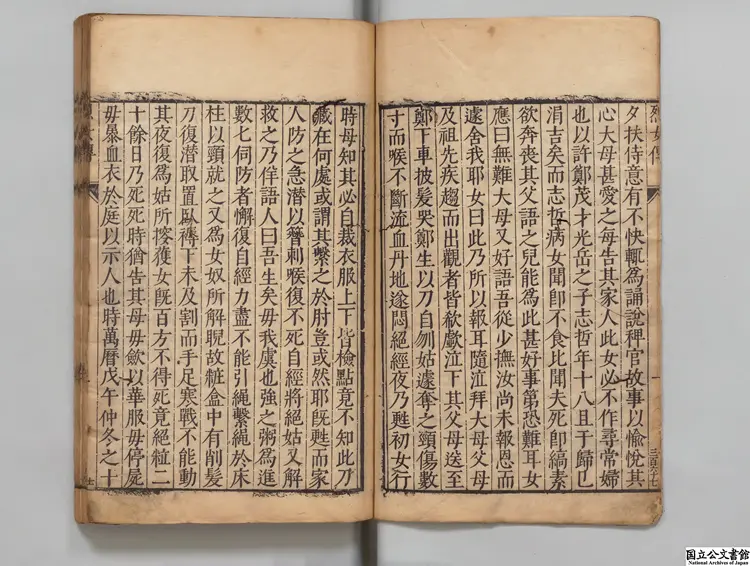 夕扶侍意有不快輒為誦說稗官故事以愉悅其
心大母甚愛之每告其家人此女必不作尋常婦
也以許鄭茂才光岳之子志哲年十八且于歸已
涓吉矣而志哲病女聞即不食比聞夫死即縞素
欲奔喪其父語之兒能為此甚好事第恐難耳女
應曰無難大母又好語吾從少撫汝尚未報恩而
遽舍我耶女曰此乃所以報耳隨泣拜大母父母
及祖先疾趨而出觀者皆欷歔泣下其父母送至
鄭下車披髮哭鄭生以刀自刎姑遽奪之頸傷數
寸而喉不斷流血丹地遂悶絕經夜乃甦初女行
時母知其必自裁衣服上下皆檢點竟不知此刀
藏在何處或謂其繫之於肘豈或然耶既甦而家
人防之急潛以簪刺喉復不死自經將絕姑又解
救之乃佯語人曰吾生矣毋我虞也強之粥為進
數匕伺防者懈復自經力盡不能引繩繫繩於床
柱以頸就之又為女奴所解睨故粧盒中有削髮
刀復潛取置臥褥下未及割而手足寒戰不能動
其夜復為姑所搜獲女既百方不得死竟絕粒二
十餘日乃死死時猶告其母毋歛以華服毋停屍
毋暴血衣於庭以示人也時萬曆戊午仲冬之十
烈女傳
三百六十七
国立公文書館
National Archives of Japan